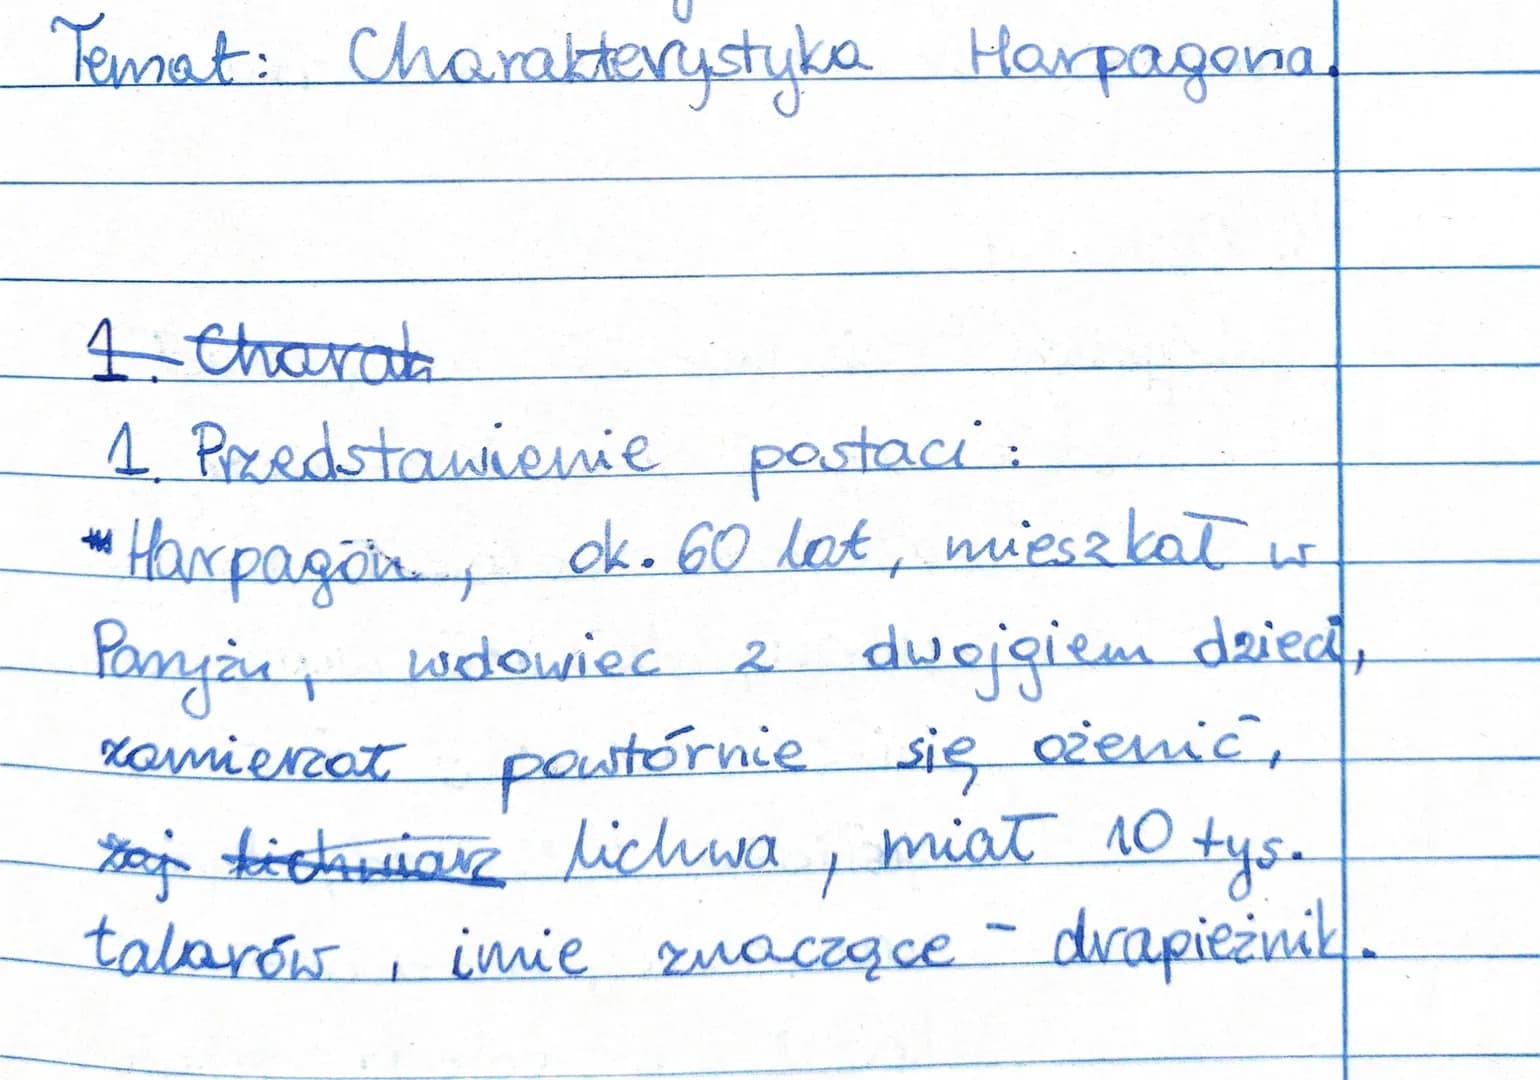 Temat: Charakterystyka Harpagona.
1. Charak
1. Przedstawienie postaci:
Harpagon, ok. 60 lat, mieszkał w
Paryżu, wdowiec z dwojgiem dzieci,
zamierzał powtórnie się ożenić,
zaj lichwiarz lichwa, miał 10 tys.
talarów, imie znaczące - drapieżnik.